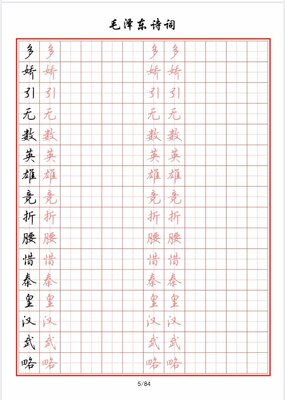 毛泽东诗词
多 多 多 多
娇 娇 娇 娇
引 引 引 引
无 无 无 无
数 数 数 数
英 英 英 英
雄 雄 雄 雄
竞 竞 竞 竞
折 折 折 折
腰 腰 腰 腰
惜 惜 惜 惜
秦 秦 秦 秦
皇 皇 皇 皇
汉 汉 汉 汉
武 武 武 武
略 略 略 略
5/84